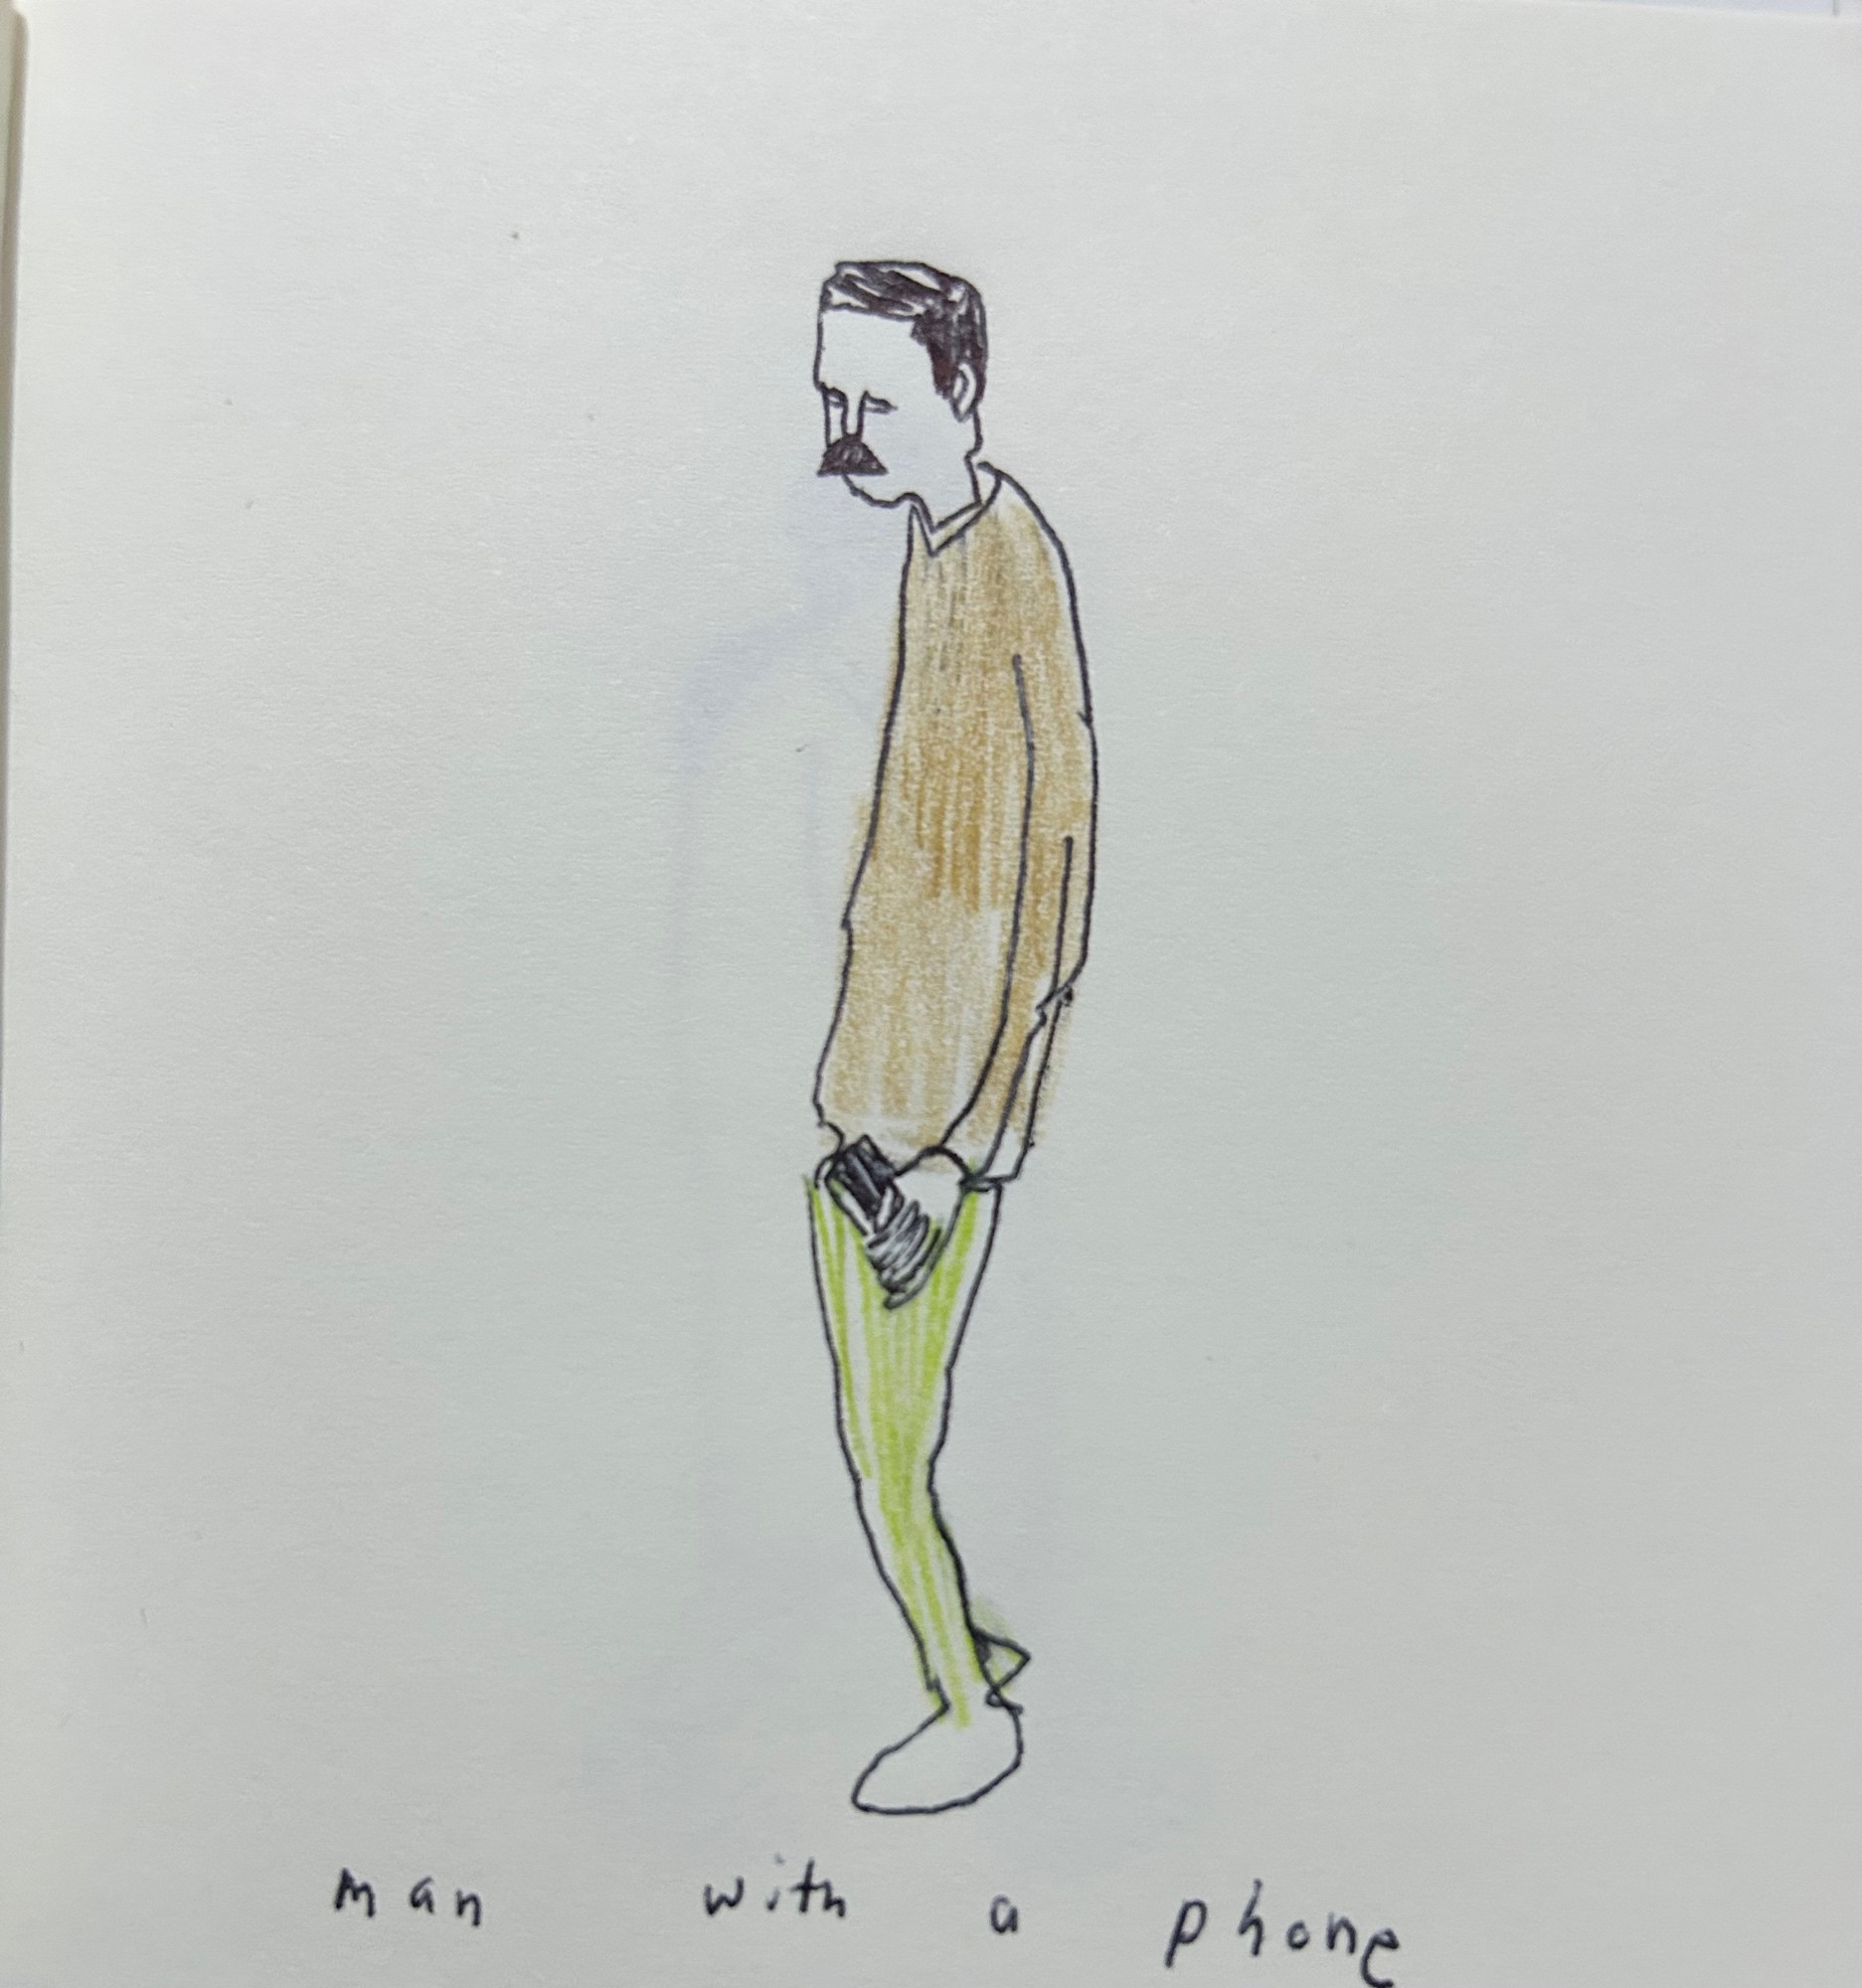 man with a phone